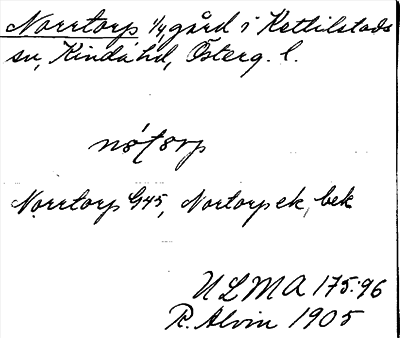 Norrtorp 1/4 gård i Kettilstads
sn, Kinda hd, Österg. l.
nór̷torp
Norrtorp G45, Nortorp ek, bek
ULMA 175:96
R. Alvin 1905